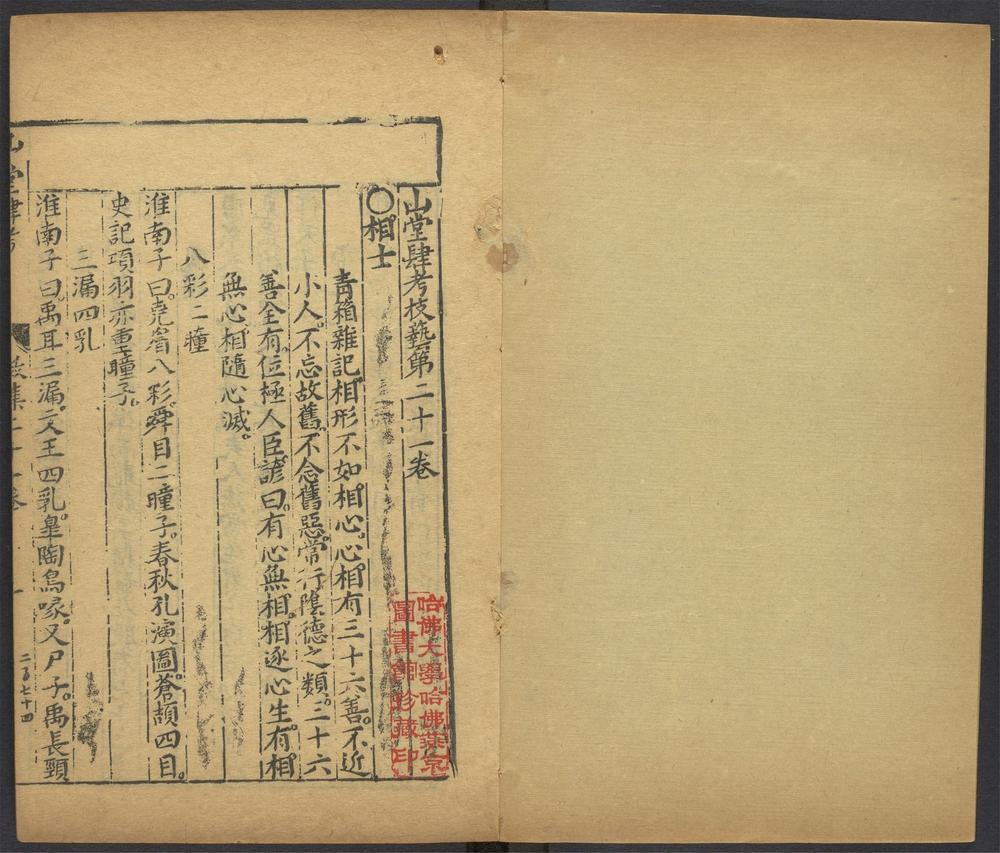 山堂肆考技藝第二十一卷
〇相士
青箱雜記相形不如相心心相有三十六善不近
小人不忘故舊不念舊惡常行陰德之類三十六
善全有位極人臣諺曰有心無相相逐心生有相
無心相隨心滅
八彩二瞳
淮南子曰堯眉八彩舜目二瞳子春秋孔演圖蒼頡四目
史記項羽亦重瞳子
三漏四乳
淮南子曰禹耳三漏文王四乳皐陶鳥喙又尸子禹長頸
山堂肆考
集二十一卷
一
二百七十四
哈佛大學哈佛燕京
圖書館珍藏印